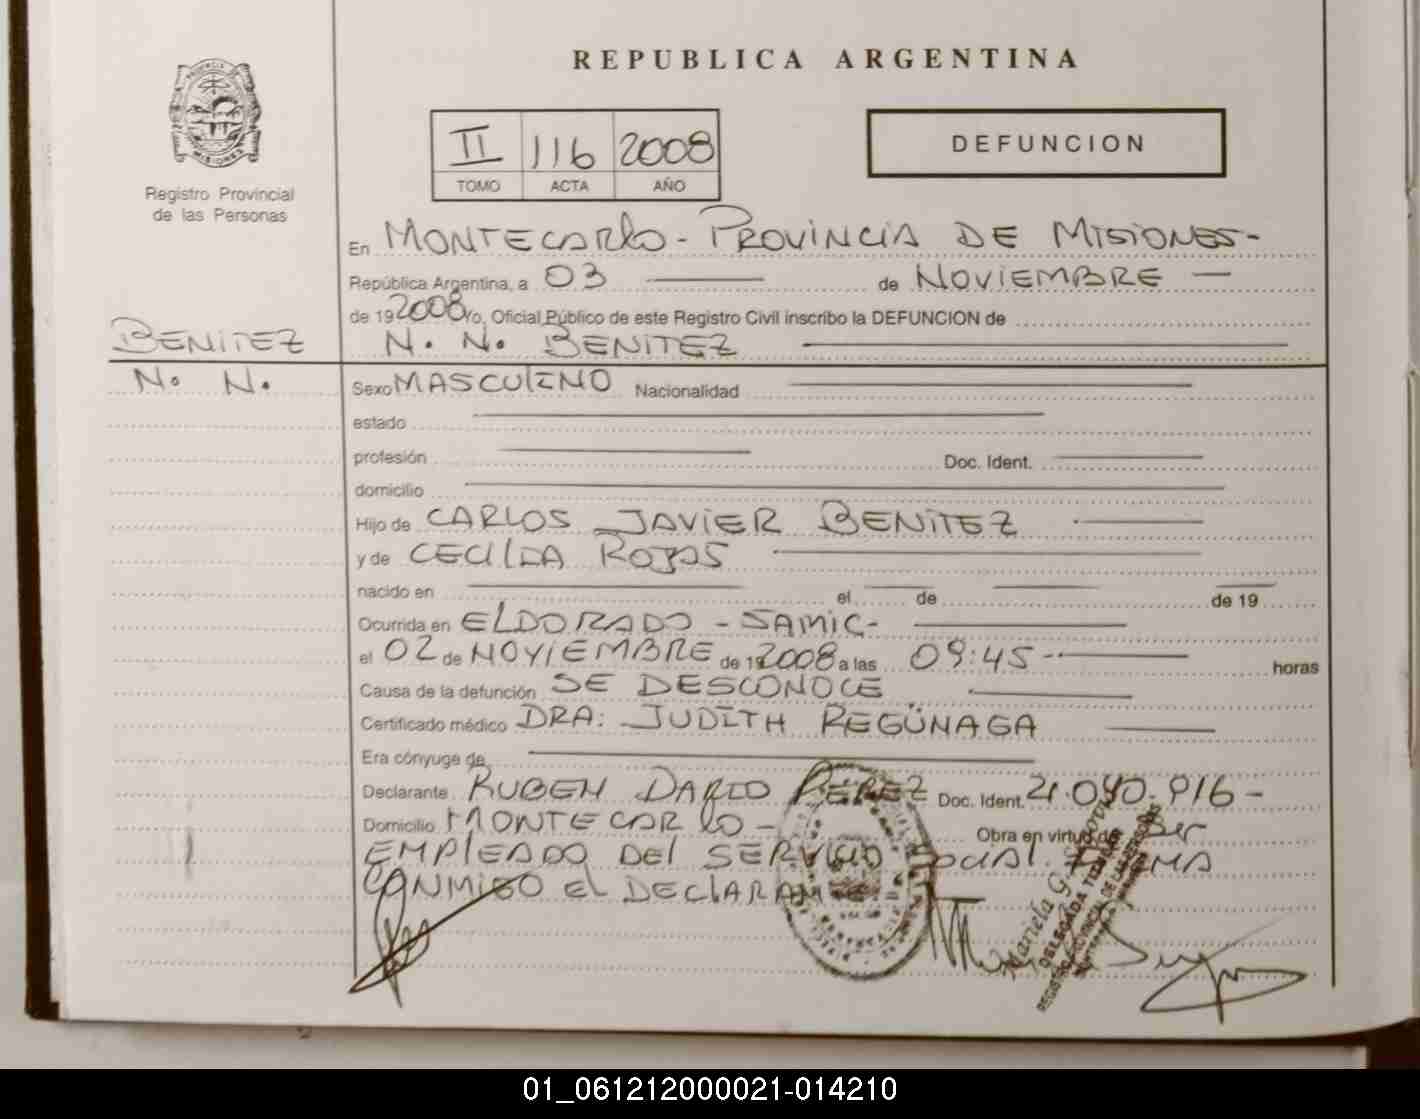 REPUBLICA ARGENTINA
PROVINCIA
MISIONES
Registro Provincial
de las Personas
II 116 2008
TOMO ACTA AÑO
DEFUNCION
En MONTECARLO - PROVINCIA DE MISIONES -
República Argentina, a 03 de NOVIEMBRE
de 19 2008 Yo, Oficial Público de este Registro Civil inscribo la DEFUNCION de
BENITEZ
N. N. BENITEZ
N. N.
Sexo MASCULINO Nacionalidad
estado
profesión Doc. Ident.
domicilio
Hijo de CARLOS JAVIER BENITEZ
y de CECILIA ROJAS
nacido en el de de 19
Ocurrida en ELDORADO - SAMIC -
el 02 de NOVIEMBRE de 19 2008 a las 09:45 - horas
Causa de la defunción SE DESCONOCE
Certificado médico DRA: JUDITH REGÜNAGA
Era cónyuge de
Declarante RUBEN DARIO PEREZ Doc. Ident. 21.040.916 -
Domicilio MONTECARLO - Obra en virtud de ser
EMPLEADO DEL SERVICIO SOCIAL. FIRMA
CONMIGO EL DECLARANTE
01_061212000021-014210